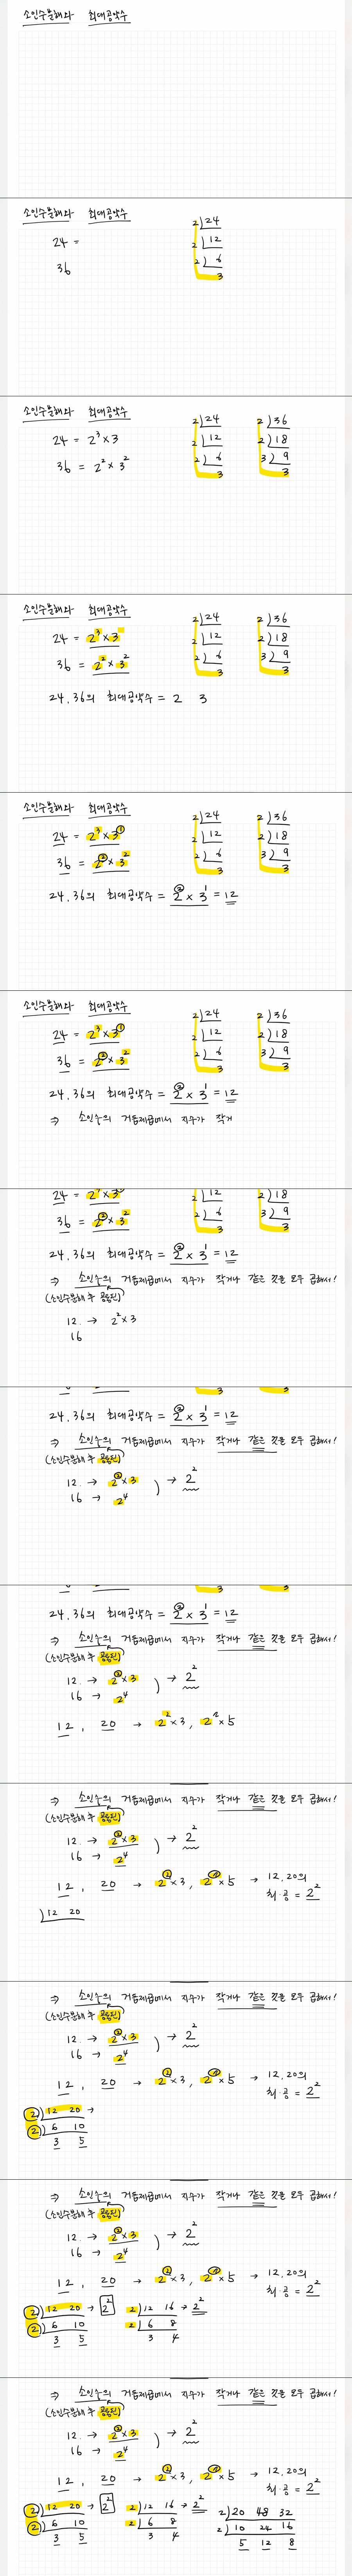 소인수분해와 최대공약수
소인수분해와 최대공약수
24 =
36
2)24
2)12
2)6
3
소인수분해와 최대공약수
24 = 2³ × 3
36 = 2² × 3²
2)24
2)12
2)6
3
2)36
2)18
3)9
3
소인수분해와 최대공약수
24 = 2³ × 3
36 = 2² × 3²
2)24
2)12
2)6
3
2)36
2)18
3)9
3
24, 36의 최대공약수 = 2 3
소인수분해와 최대공약수
24 = 2³ × 3①
36 = 2② × 3²
2)24
2)12
2)6
3
2)36
2)18
3)9
3
24, 36의 최대공약수 = 2② × 3¹ = 12
소인수분해와 최대공약수
24 = 2³ × 3①
36 = 2② × 3²
2)24
2)12
2)6
3
2)36
2)18
3)9
3
24, 36의 최대공약수 = 2② × 3¹ = 12
⇒ 소인수의 거듭제곱에서 지수가 작거
24 = 2³ × 3①
36 = 2② × 3²
2)12
2)6
3
2)18
3)9
3
24, 36의 최대공약수 = 2② × 3¹ = 12
⇒ 소인수의 거듭제곱에서 지수가 작거나 같은 것을 모두 곱해서!
(소인수분해 후 공통된)
12. → 2² × 3
16
3
3
24, 36의 최대공약수 = 2② × 3¹ = 12
⇒ 소인수의 거듭제곱에서 지수가 작거나 같은 것을 모두 곱해서!
(소인수분해 후 공통된)
12. → 2② × 3
16 → 2⁴
) → 2²
3
3
24, 36의 최대공약수 = 2② × 3¹ = 12
⇒ 소인수의 거듭제곱에서 지수가 작거나 같은 것을 모두 곱해서!
(소인수분해 후 공통된)
12. → 2② × 3
16 → 2⁴
) → 2²
12, 20 → 2² × 3, 2² × 5
⇒ 소인수의 거듭제곱에서 지수가 작거나 같은 것을 모두 곱해서!
(소인수분해 후 공통된)
12. → 2② × 3
16 → 2⁴
) → 2²
12, 20 → 2② × 3, 2② × 5 → 12, 20의
최·공 = 2²
)12 20
⇒ 소인수의 거듭제곱에서 지수가 작거나 같은 것을 모두 곱해서!
(소인수분해 후 공통된)
12. → 2② × 3
16 → 2⁴
) → 2²
12, 20 → 2② × 3, 2② × 5 → 12, 20의
최·공 = 2²
②)12 20 →
②)6 10
3 5
⇒ 소인수의 거듭제곱에서 지수가 작거나 같은 것을 모두 곱해서!
(소인수분해 후 공통된)
12. → 2② × 3
16 → 2⁴
) → 2²
12, 20 → 2② × 3, 2② × 5 → 12, 20의
최·공 = 2²
②)12 20 → 2²
②)6 10
3 5
2)12 16 → 2²
2)6 8
3 4
⇒ 소인수의 거듭제곱에서 지수가 작거나 같은 것을 모두 곱해서!
(소인수분해 후 공통된)
12. → 2② × 3
16 → 2⁴
) → 2²
12, 20 → 2② × 3, 2② × 5 → 12, 20의
최·공 = 2²
②)12 20 → 2²
②)6 10
3 5
2)12 16 → 2²
2)6 8
3 4
2)20 48 32
2)10 24 16
5 12 8